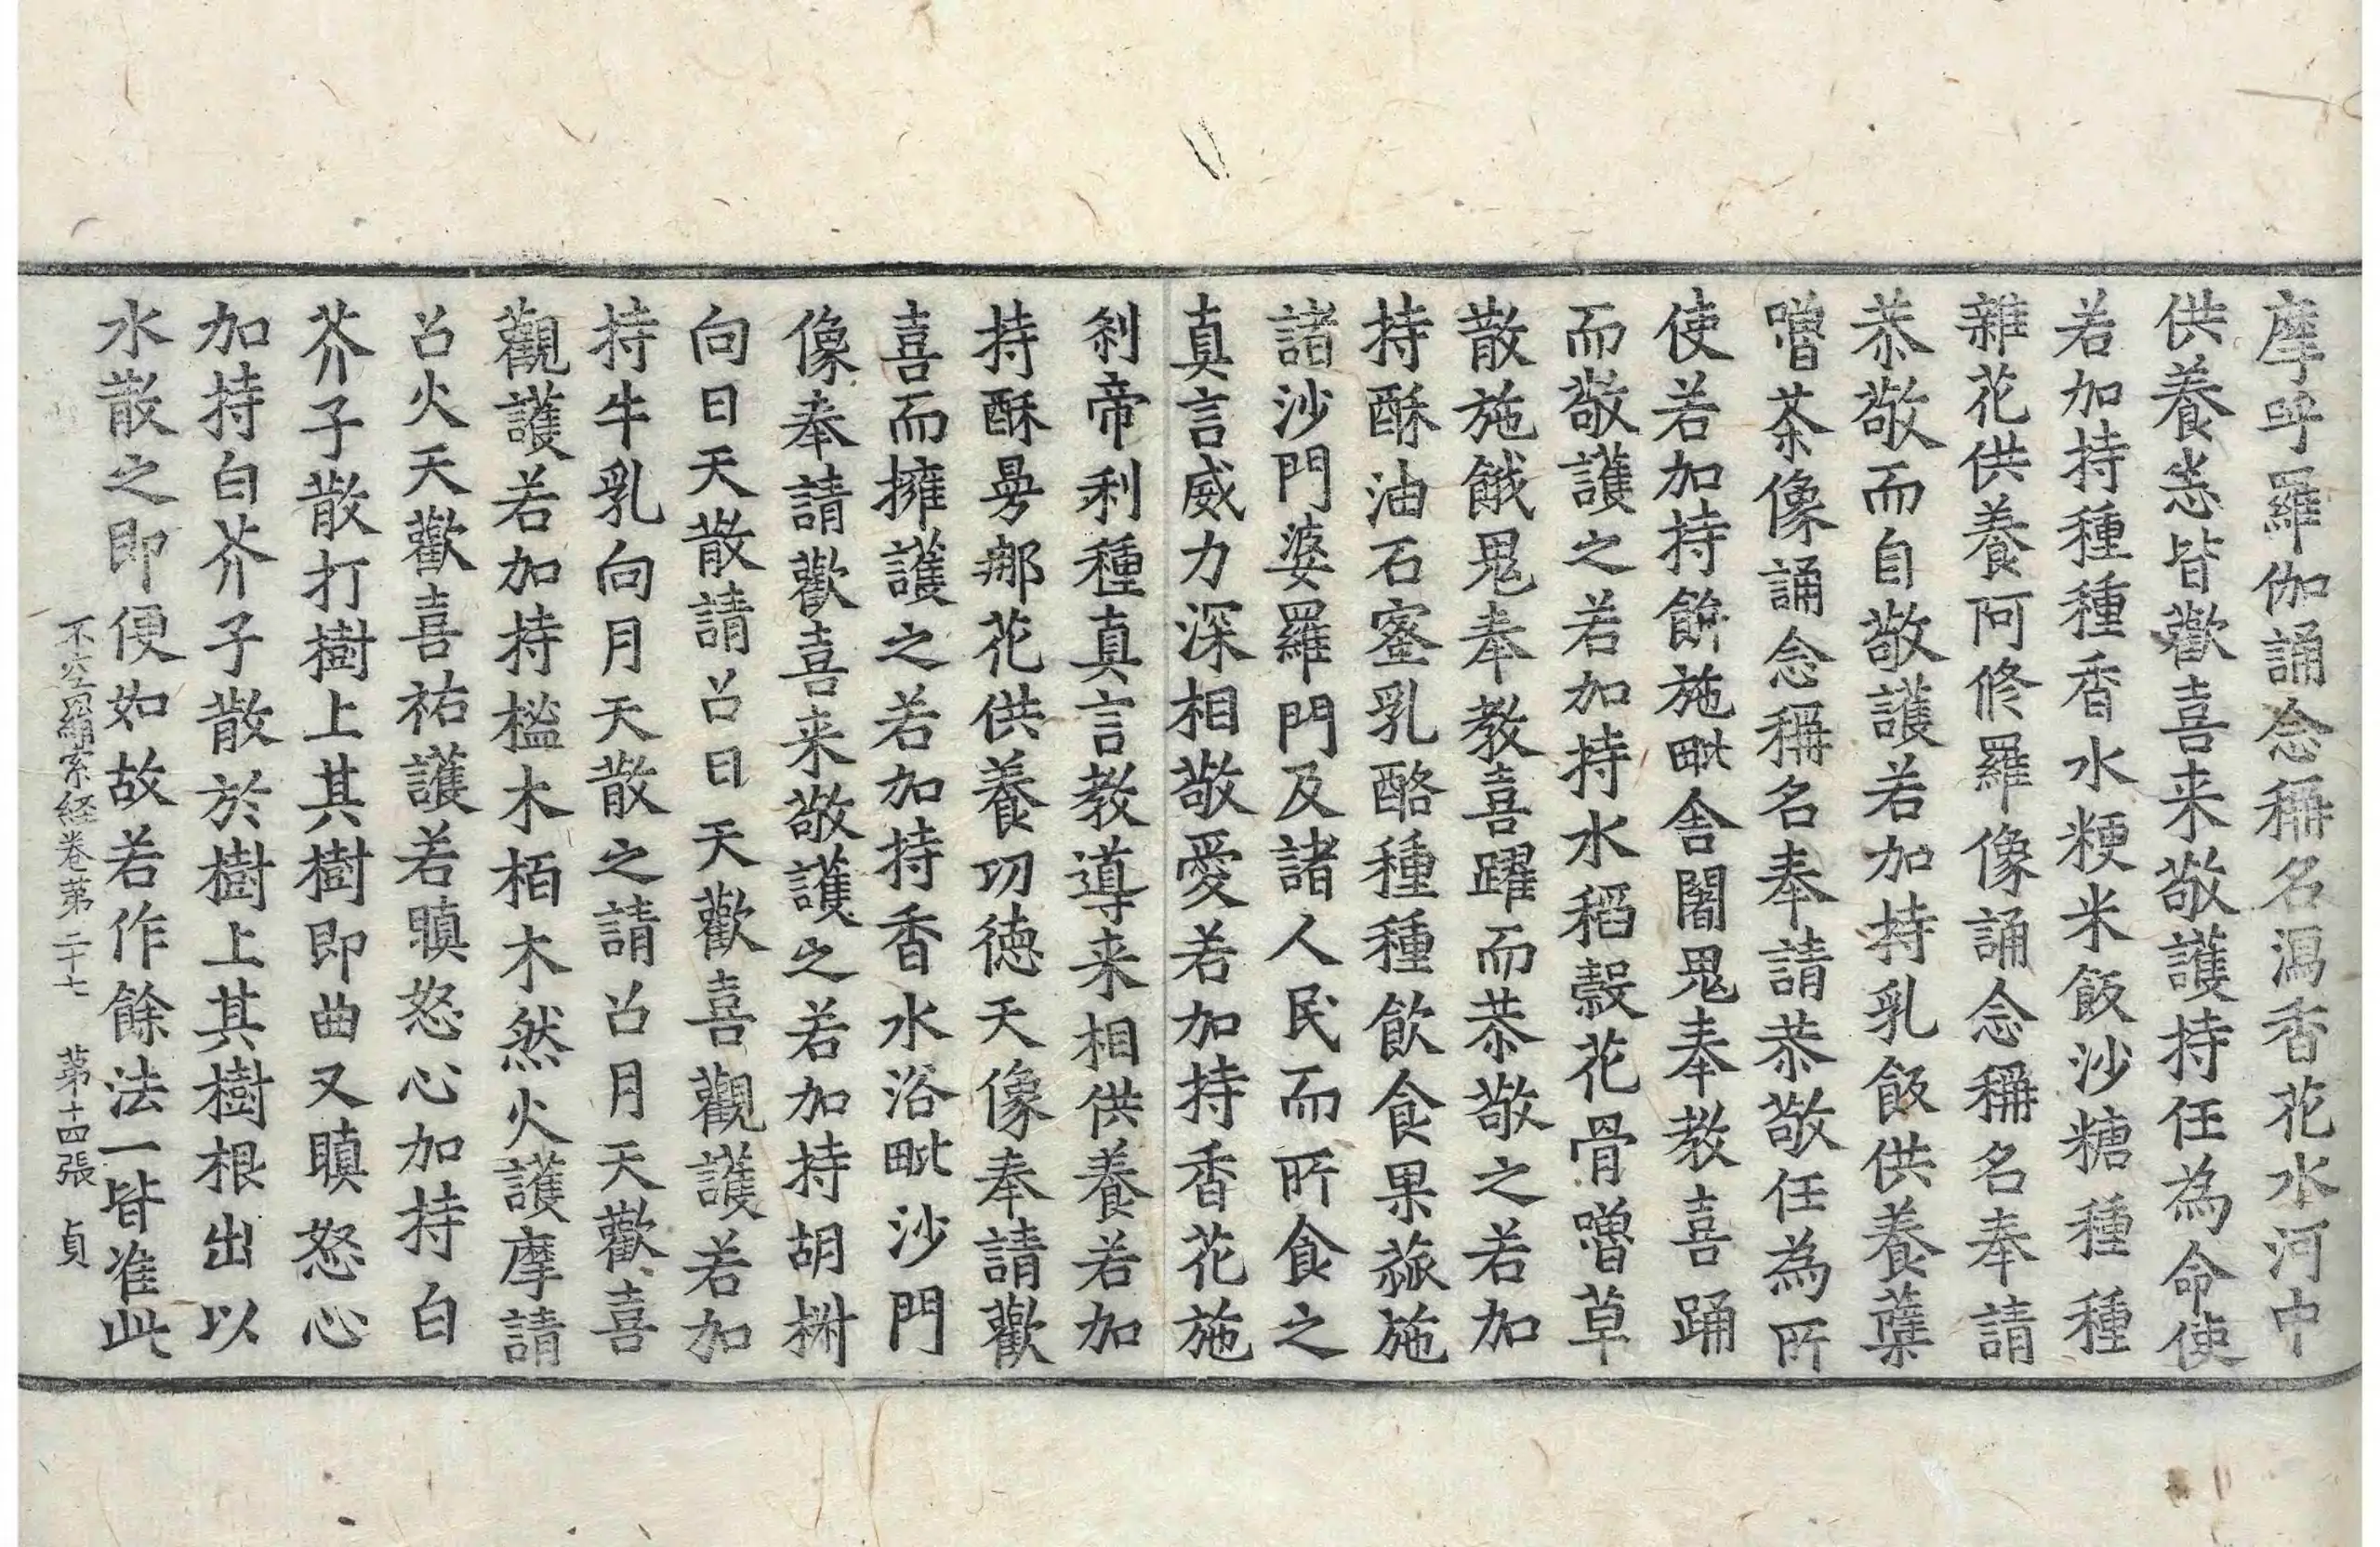 摩呼羅伽誦念稱名瀉香花水河中
供養悉皆歡喜来敬護持任為命使
若加持種種香水粳米飯沙糖種種
雜花供養阿修羅像誦念稱名奉請
恭敬而自敬護若加持乳飯供養蘖
嚕茶像誦念稱名奉請恭敬任為所
使若加持餅施毗舍闍鬼奉教喜踊
而敬護之若加持水稻穀花骨嚕草
散施餓鬼奉教喜躍而恭敬之若加
持酥油石蜜乳酪種種飲食果蓏施
諸沙門婆羅門及諸人民而所食之
真言威力深相敬愛若加持香花施
剎帝利種真言教導来相供養若加
持酥曼那花供養功德天像奉請歡
喜而擁護之若加持香水浴毗沙門
像奉請歡喜来敬護之若加持胡椒
向日天散請召日天歡喜觀護若加
持牛乳向月天散之請召月天歡喜
觀護若加持榓木栢木然火護摩請
召火天歡喜祐護若瞋怒心加持白
芥子散打樹上其樹即曲又瞋怒心
加持白芥子散於樹上其樹根出以
水散之即便如故若作餘法一皆准此
不空羂索経卷第二十七 第十四張 貞